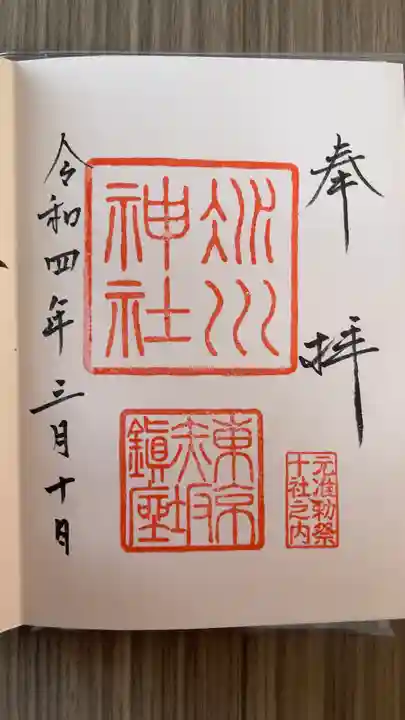 奉拝
氷川
神社
東京
赤坂
鎮座
元准勅祭
十社之内
令和四年三月十日